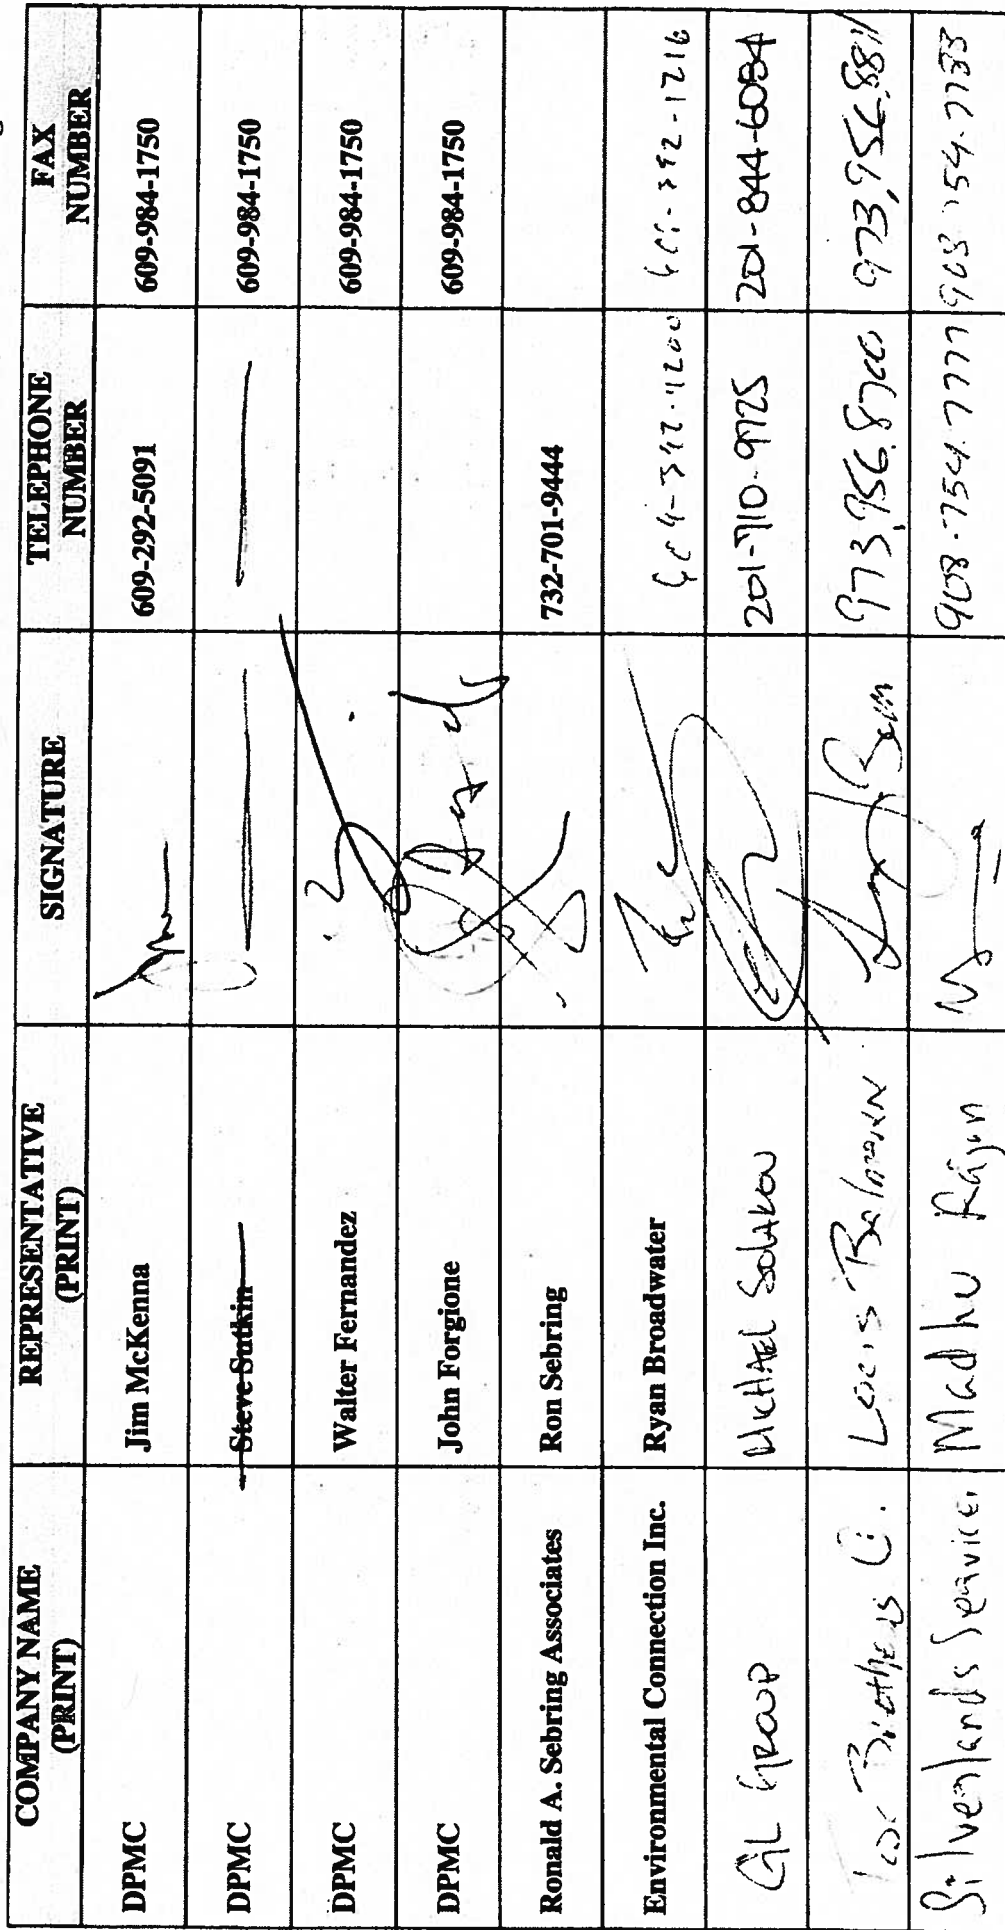 COMPANY NAME (PRINT) REPRESENTATIVE (PRINT) SIGNATURE TELEPHONE NUMBER FAX NUMBER
DPMC Jim McKenna 609-292-5091 609-984-1750
DPMC Steve Sutkin 609-984-1750
DPMC Walter Fernandez 609-984-1750
DPMC John Forgione 609-984-1750
Ronald A. Sebring Associates Ron Sebring 732-701-9444
Environmental Connection Inc. Ryan Broadwater
GL GROUP MICHAEL SOLAKOV 201-710-9725 201-844-6084
Brothers 973.956.8700 973.956.8811
Silverlands Service. Madhu Rajan 908-754-7777